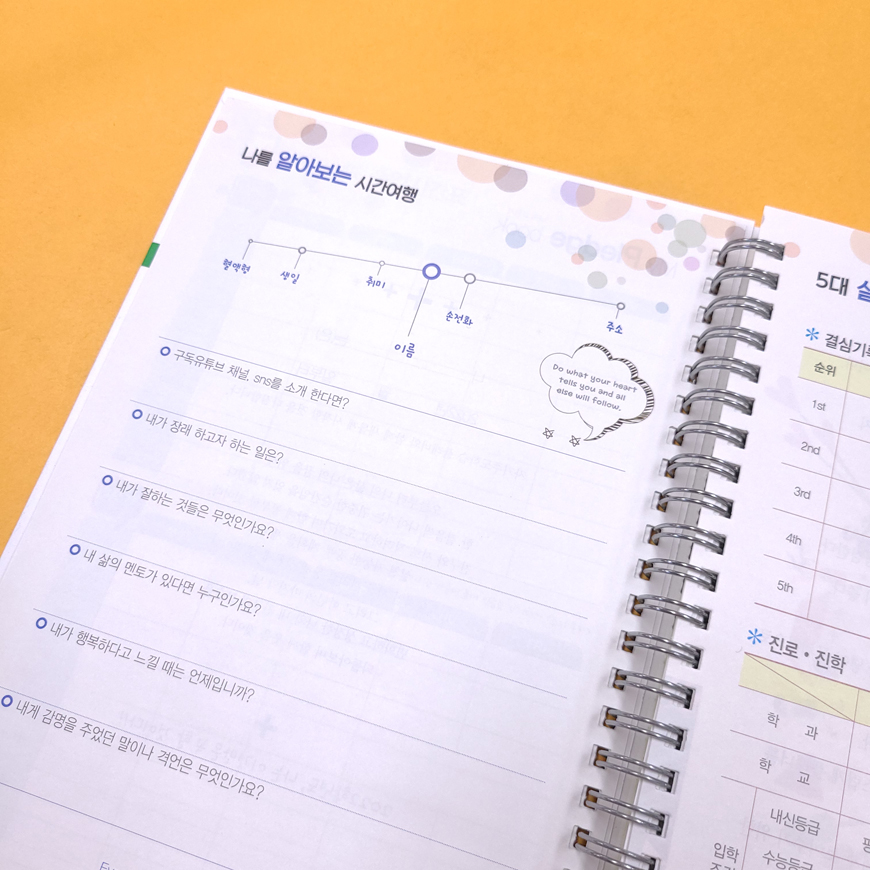 나를 알아보는 시간여행
혈액형
생일
취미
이름
손전화
주소
Do what your heart
tells you and all
else will follow.
구독유튜브 채널, sns를 소개 한다면?
내가 장래 하고자 하는 일은?
내가 잘하는 것들은 무엇인가요?
내 삶의 멘토가 있다면 누구인가요?
내가 행복하다고 느낄 때는 언제입니까?
내게 감명을 주었던 말이나 격언은 무엇인가요?
5대
결심기록
순위
1st
2nd
3rd
4th
5th
진로·진학
학 과
학 교
내신등급
입학
수능등급